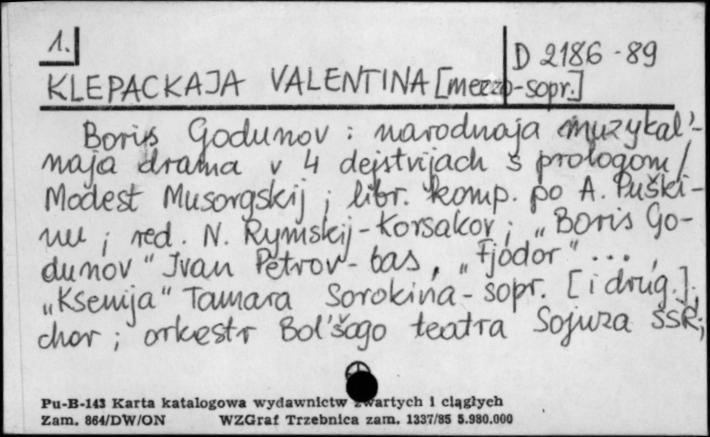 1.
D 2186-89
KLEPACKAJA VALENTINA [mezzo-sopr.]
Boris Godunov : narodnaja muzykal'-
naja drama v 4 dejstvijach s prologom /
Modest Musorgskij ; libr. komp. po A. Puški-
nu ; red. N. Rymskij-Korsakov ; „Boris Go-
dunov" Ivan Petrov - bas, „Fjodor" ... ,
„Ksenija" Tamara Sorokina - sopr. [i drug.] ;
chor ; orkestr Bol'šogo teatra Sojuza SSR ;
Pu-B-143 Karta katalogowa wydawnictw zwartych i ciągłych
Zam. 864/DW/ON WZGraf Trzebnica zam. 1337/85 5.980.000